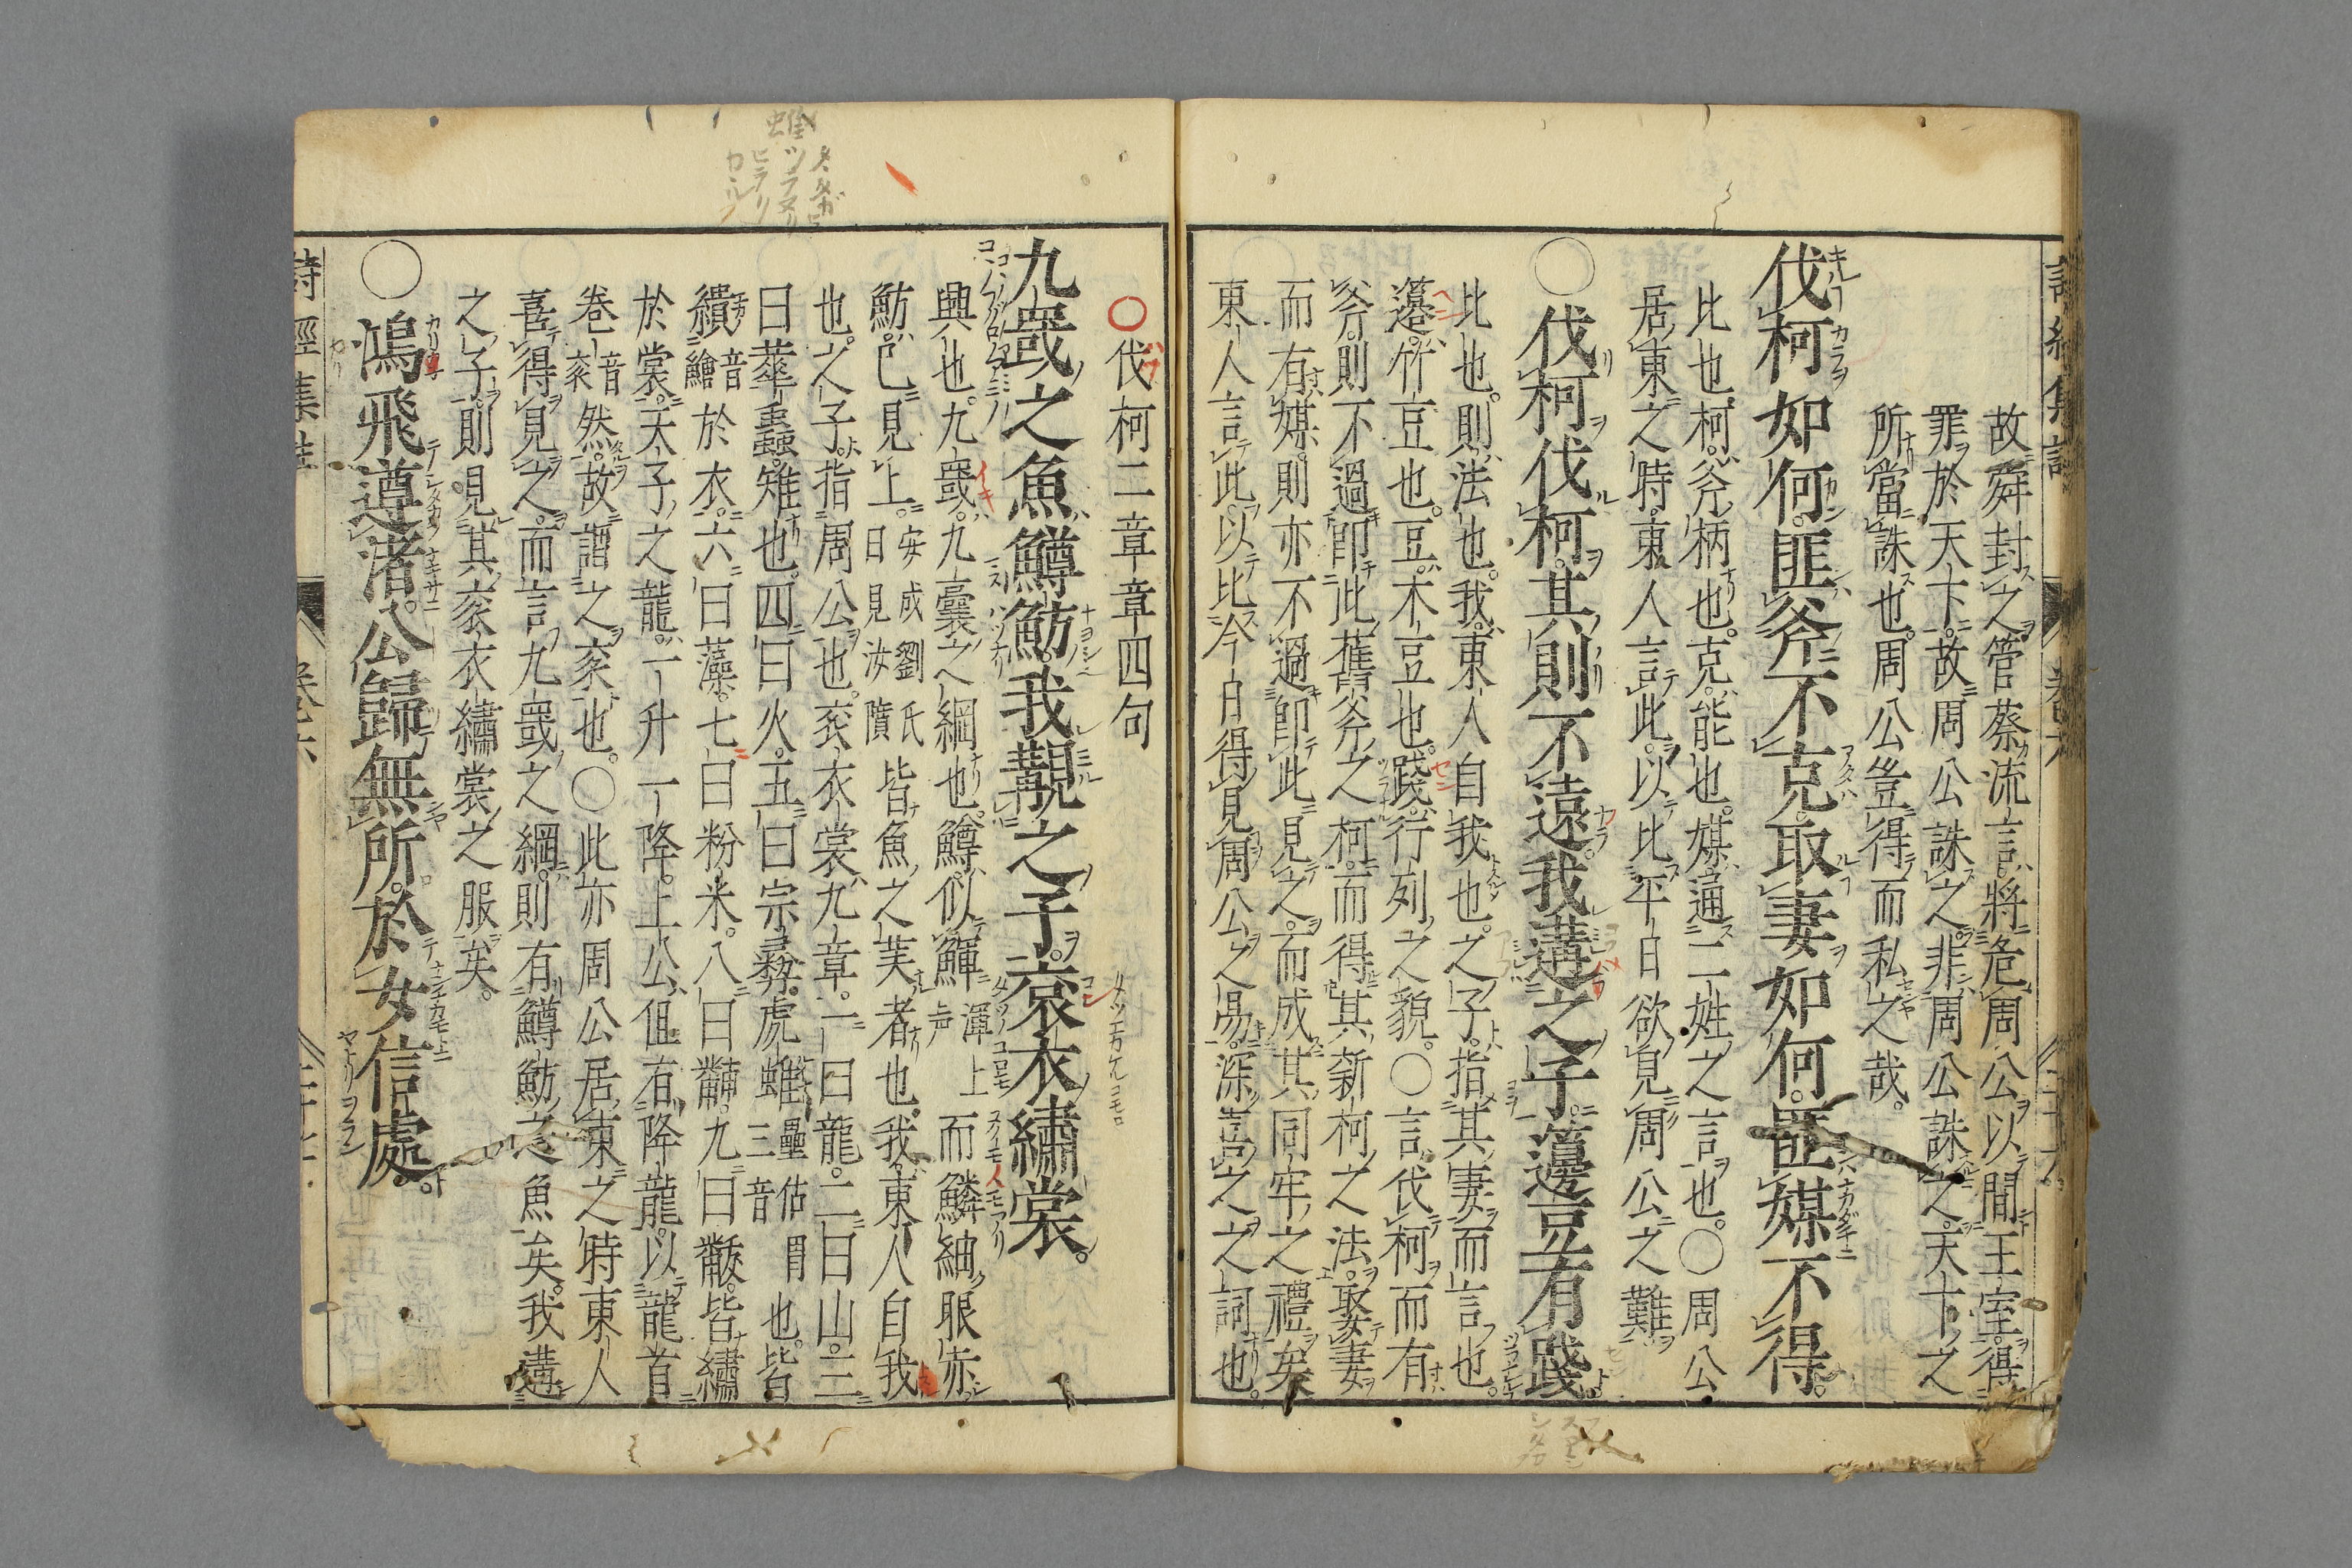 故舜封之管蔡流言將危周公以間王室得
罪於天下故周公誅之非周公誅之天下之
所當誅也周公豈得而私之哉
伐柯如何匪斧不克取妻如何匪媒不得
比也柯斧柄也克能也媒通二姓之言也○周公
居東之時東人言此以比平日欲見周公之難
○伐柯伐柯其則不遠我遘之子籩豆有踐
比也則法也我東人自我也之子指其妻而言也
籩竹豆也豆木豆也踐行列之貌○言伐柯而有
斧則不過即此舊斧之柯而得其新柯之法娶妻
而有媒則亦不過即此見之而成其同牢之禮矣
東人言此以比今日得見周公之易深喜之之詞也
○伐柯二章章四句
九罭之魚鱒魴我覯之子袞衣繡裳
興也九罭九囊之網也鱒似鯶渾上声而鱗細眼赤
魴已見上安成劉氏曰見汝墳皆魚之美者也我東人自我
也之子指周公也袞衣裳九章一曰龍二曰山三
曰華蟲雉也四曰火五曰宗彝虎蜼壘三音估胃也皆
繢音繪於衣六曰藻七曰粉米八曰黼九曰黻皆繡
於裳天子之龍一升一降上公但有降龍以龍首
卷音袞然故謂之袞也○此亦周公居東之時東人
喜得見之而言九罭之網則有鱒魴之魚矣我遘
之子則見其袞衣繡裳之服矣
○鴻飛遵渚公歸無所於女信處